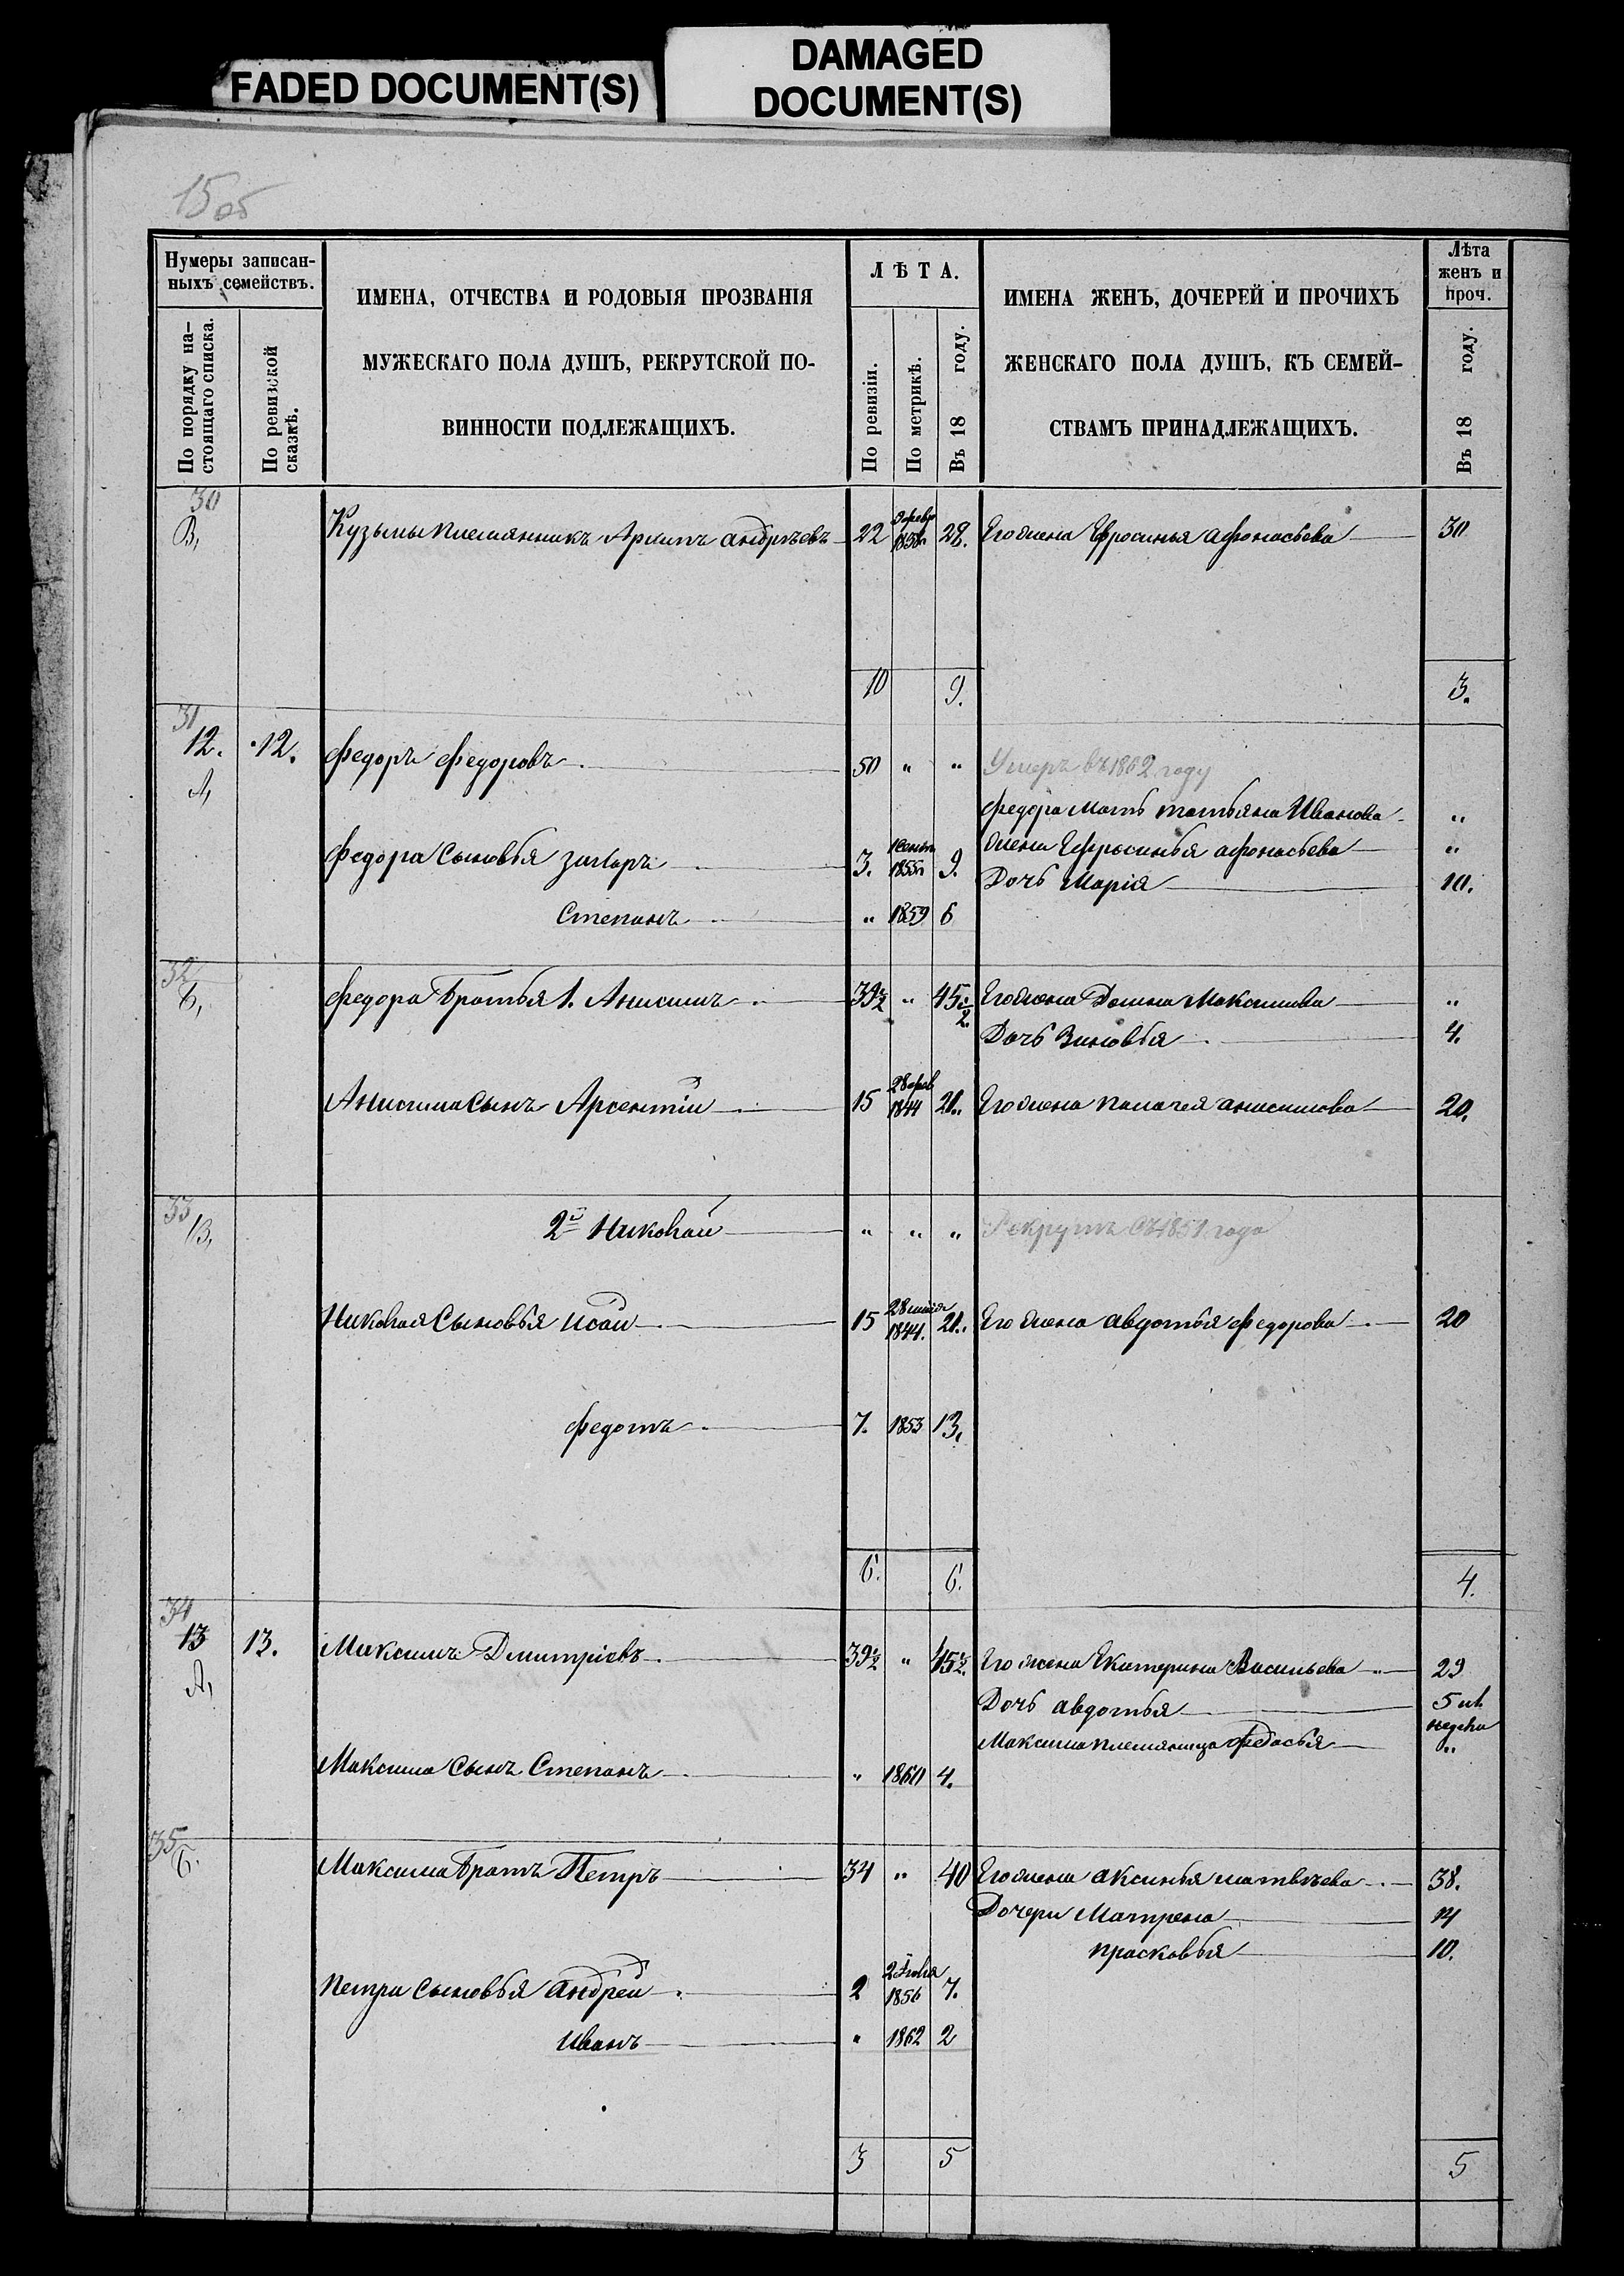 FADED DOCUMENT(S)
DAMAGED
DOCUMENT(S)
15об
Нумеры записан-
ныхъ семействъ.
По порядку на-
стоящаго списка.
По ревизской
сказкѣ.
ИМЕНА, ОТЧЕСТВА И РОДОВЫЯ ПРОЗВАНІЯ
МУЖЕСКАГО ПОЛА ДУШЪ, РЕКРУТСКОЙ ПО-
ВИННОСТИ ПОДЛЕЖАЩИХЪ.
ЛѢТА.
По ревизіи.
По метрикѣ.
Въ 18 году.
ИМЕНА ЖЕНЪ, ДОЧЕРЕЙ И ПРОЧИХЪ
ЖЕНСКАГО ПОЛА ДУШЪ, КЪ СЕМЕЙ-
СТВАМЪ ПРИНАДЛЕЖАЩИХЪ.
Лѣта
женъ и
проч.
Въ 18 году.
30
В, Кузьмы племянникъ Архипъ андрѣевъ 22 28. Его жена Ефросинья афонасьева 30
10 9. 3.
31
12. 12. Федоръ Федоровъ 50 " " Умеръ въ 1862 году
А,
Федора мать татьяна Иванова "
Федора Сыновья захаръ 3. 1855 9. жена Ефросинья афонасьева "
Дочь Марія 10.
Степанъ " 1859 6
32
Б, Федора Братья 1. Анисимъ 39½ " 45½ Его жена Домна Максимова "
Дочь Зиновья 4.
Анисима Сынъ Арсентій 15 28 фев 1844 21. Его жена палагея анисимова 20.
33
В, 2й Николай " " " Рекрутъ съ 1851 года
Николая Сыновья исай 15 1844. 21. Его жена авдотья федорова 20
федотъ 7. 1853 13.
6. 6. 4.
34
13 13. Максимъ Дмитріевъ 39½ " 45½ Его жена Екатерина Васильева 29
А,
Дочь авдотья 5 
недели
Максима племяница федосья "
Максима Сынъ Степанъ " 1860 4.
35
Б. Максима братъ Петръ 34 " 40 Его жена аксинья матвѣева 38.
Дочери Матрена 14
прасковья 10.
Петра сыновья андрей 2 1856 7.
Иванъ " 1862 2
3 5 5